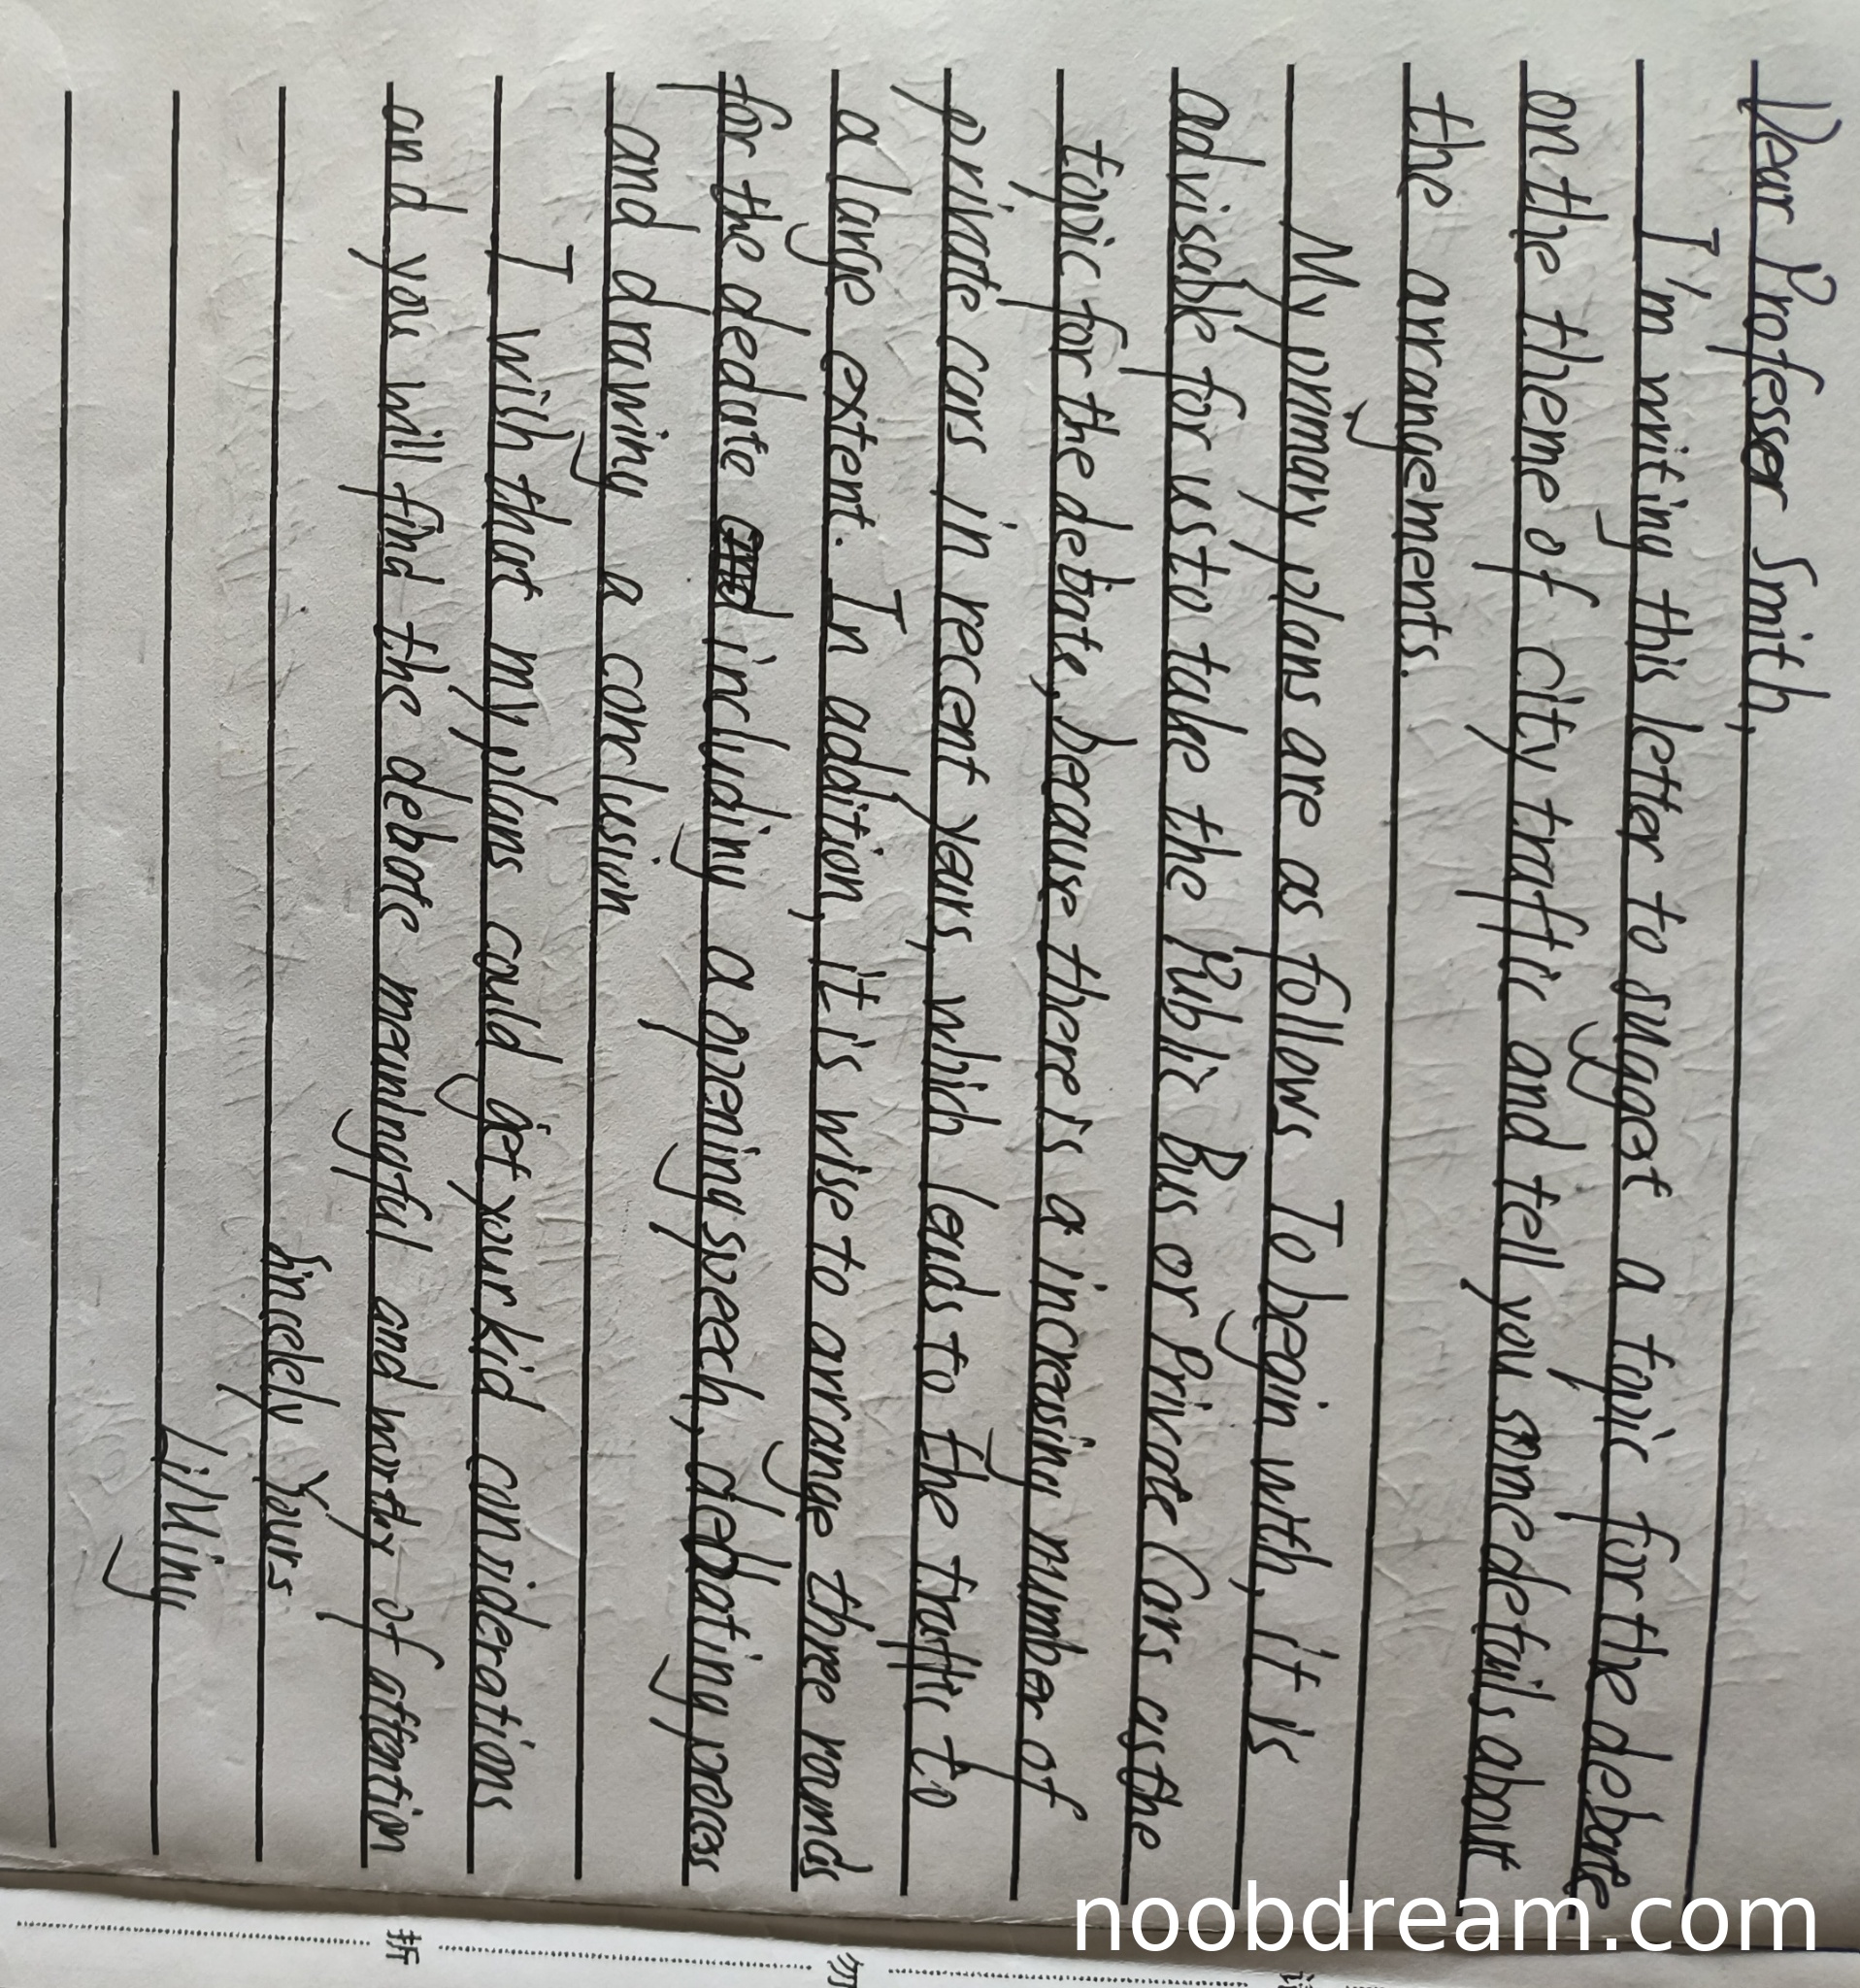 Dear Professer Smith,
I'm writing this letter to suggest a topic for the debate
on the theme of city traffic and tell you some details about
the arrangements.
My primary plans are as follows To begin with, it is
advisable for us to take the Public Bus or Private Cars as the
topic for the debate, because there is a increasing number of
private cars in recent years, which leads to the traffic to
a large extent. In addition, it is wise to arrange three rounds
for the debate including a opening speech, debating process
and drawing a conclusion
I wish that my plans could get your kid considerations
and you will find the debate meaningful and worthy of attention
Sincely Yours
LiMing
折
勿
noobdream.com